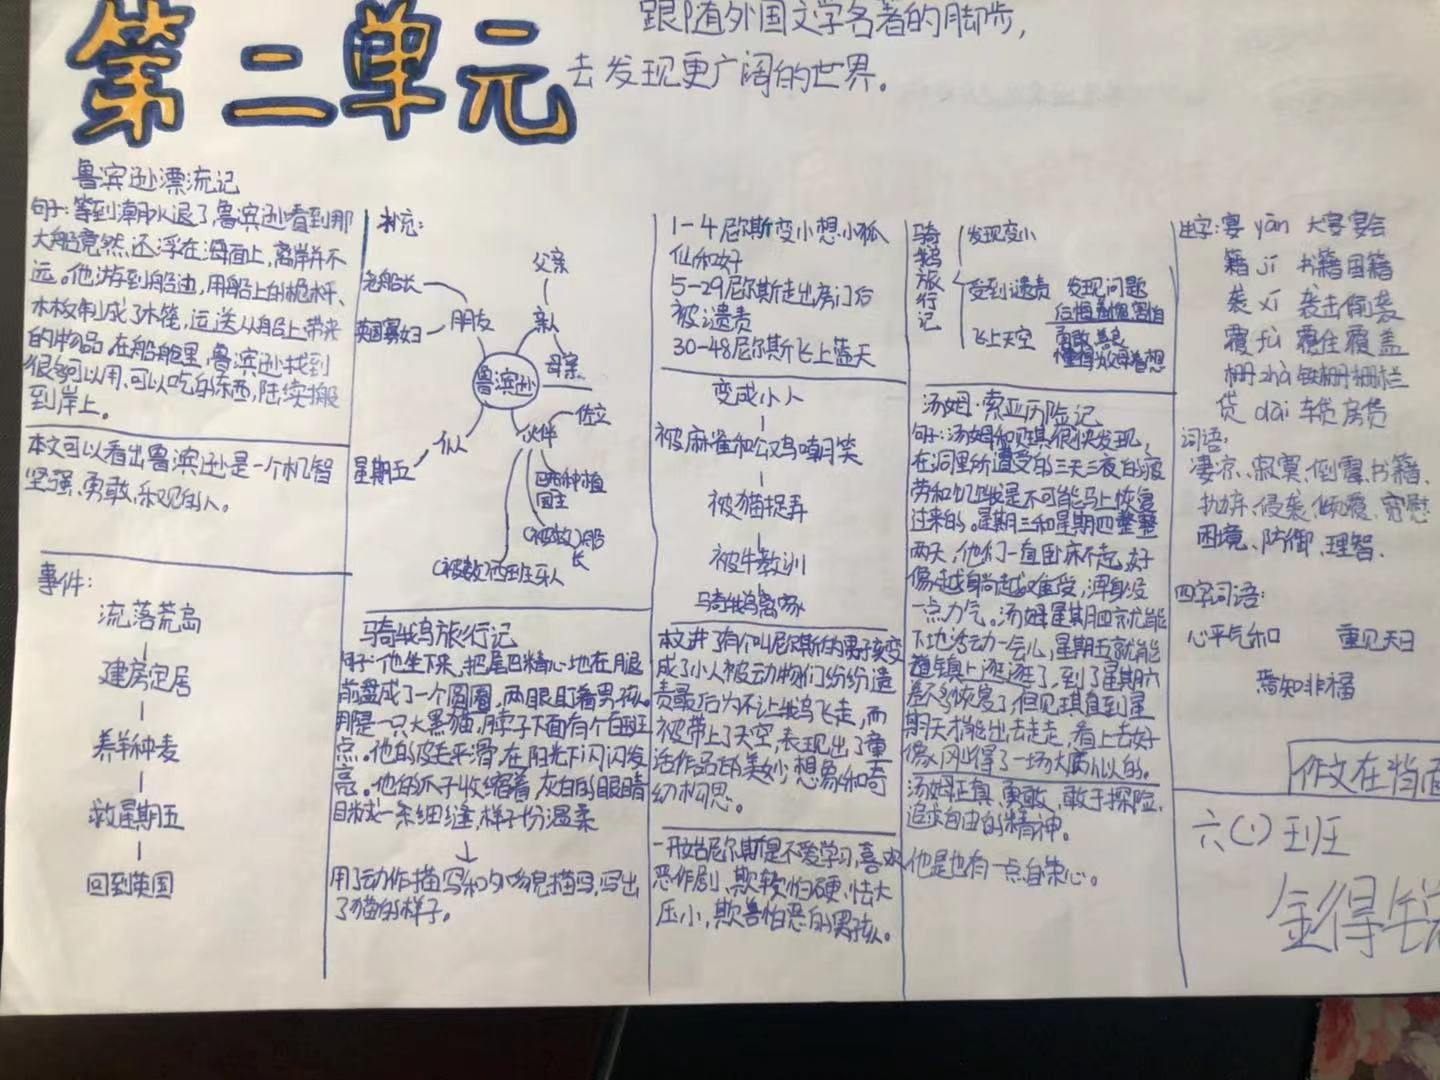 第二单元
跟随外国文学名著的脚步,
去发现更广阔的世界。
鲁滨逊漂流记
句子:等到潮水退了,鲁滨逊看到那
大船竟然还浮在海面上,离岸并不
远。他游到船边,用船上的桅杆、
木板制成了木筏,运送从船上带来
的物品。在船舱里,鲁滨逊找到
很多可以用、可以吃的东西,陆续搬
到岸上。
本文可以看出鲁滨逊是一个机智
坚强、勇敢、乐观的人。
事件:
流落荒岛
建房定居
养羊种麦
救星期五
回到英国
补充:
父亲
老船长
亲人
英国寡妇
朋友
母亲
鲁滨逊
佐立
仆人
伙伴
星期五
巴西种植
园主
(被救)船
长
(被救)西班牙人
骑鹅旅行记
句子:他坐下来,把尾巴精心地在腿
前盘成了一个圆圈,两眼盯着男孩。
那是一只大黑猫,脖子下面有个白斑
点。他的皮毛平滑,在阳光下闪闪发
亮。他的爪子收缩着,灰白的眼睛
眯成一条细缝,样子十分温柔
用了动作描写和外貌描写,写出
了猫的样子。
1-4尼尔斯变小想小狐
仙和好
5-29尼尔斯走出房门后
被谴责
30-48尼尔斯飞上蓝天
变成小人
被麻雀和公鸡嘲笑
被猫捉弄
被牛教训
骑鹅离家
本文讲了有个叫尼尔斯的男孩变
成了小人被动物们纷纷谴
责最后为不让鹅飞走,而
被带上了天空,表现出了童
话作品的美妙想象和奇
幻构思。
一开始尼尔斯是不爱学习,喜欢
恶作剧、欺软怕硬、恃大
压小,欺善怕恶的男孩。
骑鹅旅行记
发现变小
受到谴责 发现问题
飞上天空 勇敢、善良
懂得为父母着想
汤姆·索亚历险记
句子:汤姆和贝琪很快发现,
在洞里所遭受的三天三夜的疲
劳和饥饿是不可能马上恢复
过来的。星期三和星期四整整
两天,他们一直卧床不起,好
像越躺越难受,浑身没
一点力气。汤姆星期四就能
下地活动一会儿,星期五就能
镇上逛逛了,到了星期六
差不多恢复了但贝琪直到星
期天才能出去走走,看上去好
像刚得了一场大病似的。
汤姆正直、勇敢,敢于探险、
追求自由的精神。
他是也有一点自来心。
生字:宴 yàn 大宴宴会
籍 jí 书籍国籍
袭 xí 袭击偷袭
覆 fù 覆住覆盖
栅 zhà 铁栅栅栏
贷 dài 车贷房贷
词语:
凄凉、寂寞、倒霉、书籍、
抛弃、侵袭、倾覆、宽慰
困境、防御、理智、
四字词语:
心平气和 重见天日
焉知非福
作文在背面
六(1)班